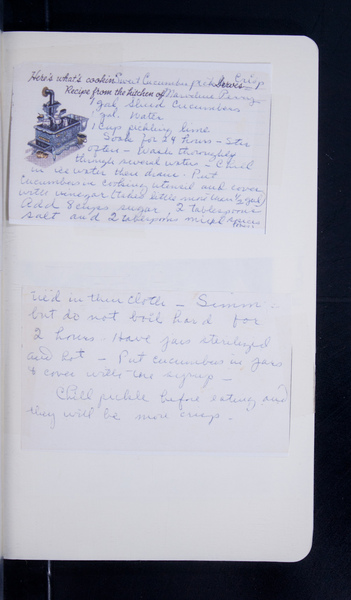 Here's what's cookin Sweet Cucumber pickle Crisp Serves
Recipe from the kitchen of
1 gal. Sliced Cucumbers
1 gal. Water
1 Cup pickling lime
Soak for 24 hours - Stir
often - Wash thoroughly
through several waters - Chill
in ice water then drain. Put
Cucumbers in cooking utensil and cover
with vinegar (takes little more than ½ gal)
Add 8 cups sugar, 2 tablespoons
salt and 2 tablespoons mixed spices
tied in thin cloth - Simmer
but do not boil hard for
2 hours. Have jars sterilized
and hot - Put cucumbers in jars
& cover with the syrup -
Chill pickle before eating and
they will be more crisp.